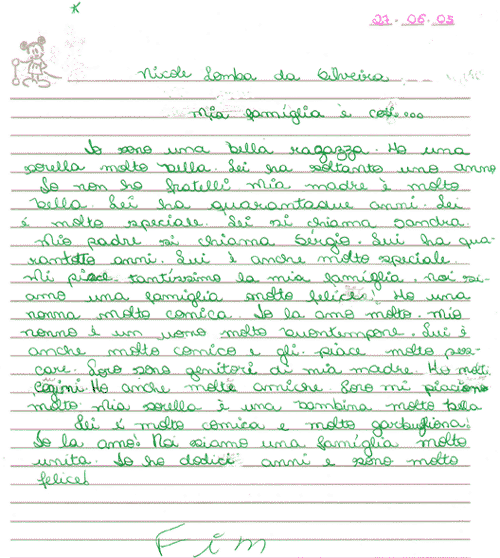 27.06.05
Nicole Lomba da Silveira
Mia famiglia è così...
Io sono una bella ragazza. Ho una
sorella molto bella. Lei ha soltanto uno anno
Io non ho fratelli Mia madre è molto
bella. Lei ha quarantadue anni. Lei
é molto speciale. Lei si chiama Sandra.
Mio padre si chiama Sérgio. Lui ha qua-
rantotto anni. Lui è anche molto speciale.
Mi piace tantíssimo la mia famíglia. Noi si-
amo una famiglia molto felice! Ho una
nonna molto comica. Io la amo molto. Mio
nonno è un uomo molto buontempone. Lui è
anche molto comico e gli piace molto pes-
care. Loro sono genitori di mia madre. Ho molti
cugini. Ho anche molte amiche. Loro mi piacciono
molto. Mia sorella è una bambina molto bella
Lei è molto comica e molto garbugliona!
Io la amo! Noi siamo una famíglia molto
unita. Io ho dodici anni e sono molto
felice!
Fim